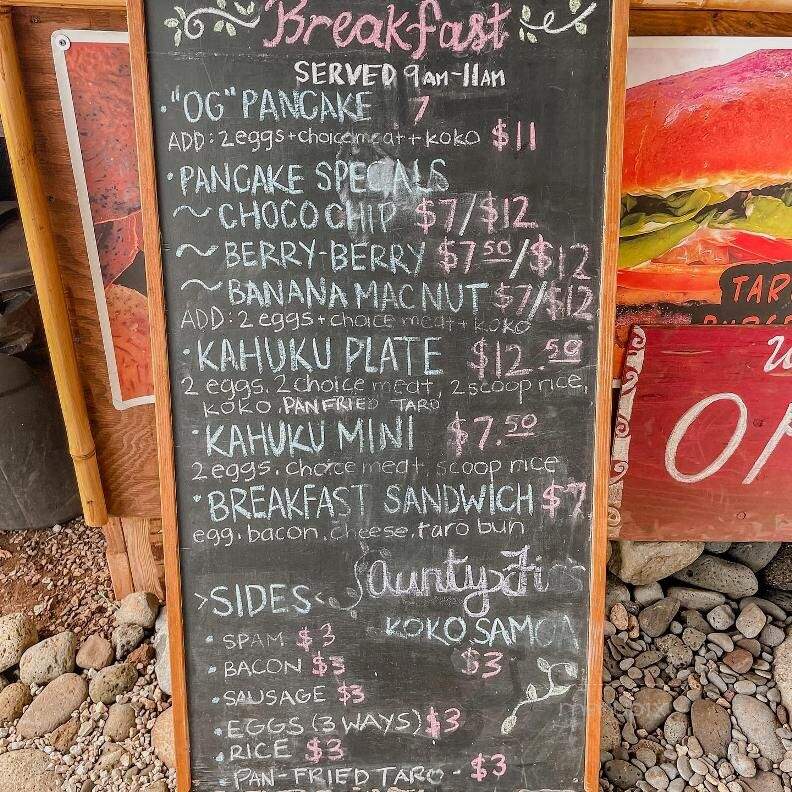 Breakfast
SERVED 9AM-11AM
"OG" PANCAKE 7
ADD: 2 eggs + choice meat + koko $11
PANCAKE SPECIALS
~ CHOCO CHIP $7/$12
~ BERRY-BERRY $7.50/$12
~ BANANA MAC NUT $7/$12
ADD: 2 eggs + choice meat + koko
KAHUKU PLATE $12.50
2 eggs, 2 choice meat, 2 scoop rice,
koko, PAN FRIED TARO
KAHUKU MINI $7.50
2 eggs, choice meat, scoop rice
BREAKFAST SANDWICH $7
egg, bacon, cheese, taro bun
Aunty
>SIDES<
KOKO SAMOA
$3
SPAM $3
BACON $3
SAUSAGE $3
EGGS (3 WAYS) $3
RICE $3
PAN-FRIED TARO - $3
TAR